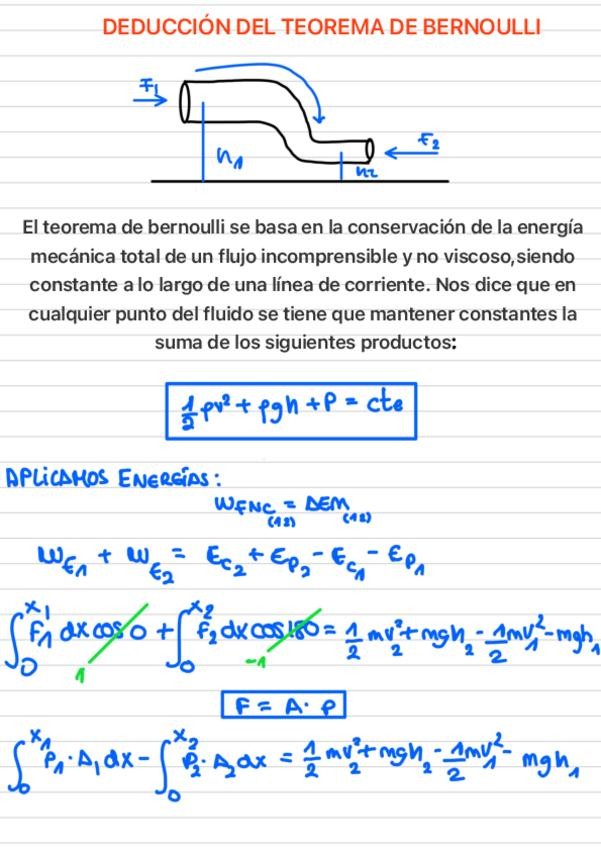 DEDUCCIÓN DEL TEOREMA DE BERNOULLI
F₁
F₂
h₁
h₂
El teorema de bernoulli se basa en la conservación de la energía
mecánica total de un flujo incomprensible y no viscoso,siendo
constante a lo largo de una línea de corriente. Nos dice que en
cualquier punto del fluido se tiene que mantener constantes la
suma de los siguientes productos:
1/2 ρv² + ρgh + P = cte
APLICAMOS ENERGÍAS:
W_FNC (12) = ΔEM (12)
W_F₁ + W_F₂ = Ec₂ + Ep₂ - Ec₁ - Ep₁
∫₀^x₁ F₁ dx cos 0 + ∫₀^x₂ F₂ dx cos 180 = 1/2 mv₂² + mgh₂ - 1/2 mv₁² - mgh₁
1 -1
F = A · P
∫₀^x₁ P₁ · A₁ dx - ∫₀^x₂ P₂ · A₂ dx = 1/2 mv₂² + mgh₂ - 1/2 mv₁² - mgh₁